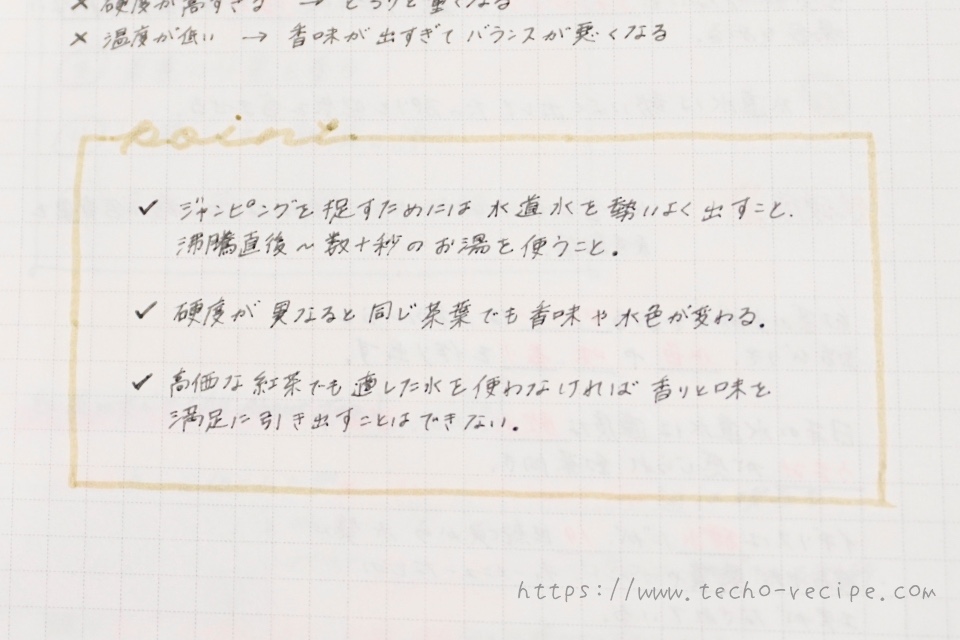 × 硬度が高すぎる → どろりと重くなる
× 温度が低い → 香味が出すぎてバランスが悪くなる
point.
✓ ジャンピングを捉すためには 水道水を勢いよく出すこと.
沸騰直後〜数十秒のお湯を使うこと.
✓ 硬度が異なると同じ茶葉でも香味や水色が変わる.
✓ 高価な紅茶でも適した水を使わなければ香りと味を
満足に引き出すことはできない.
https://www.techo-recipe.com